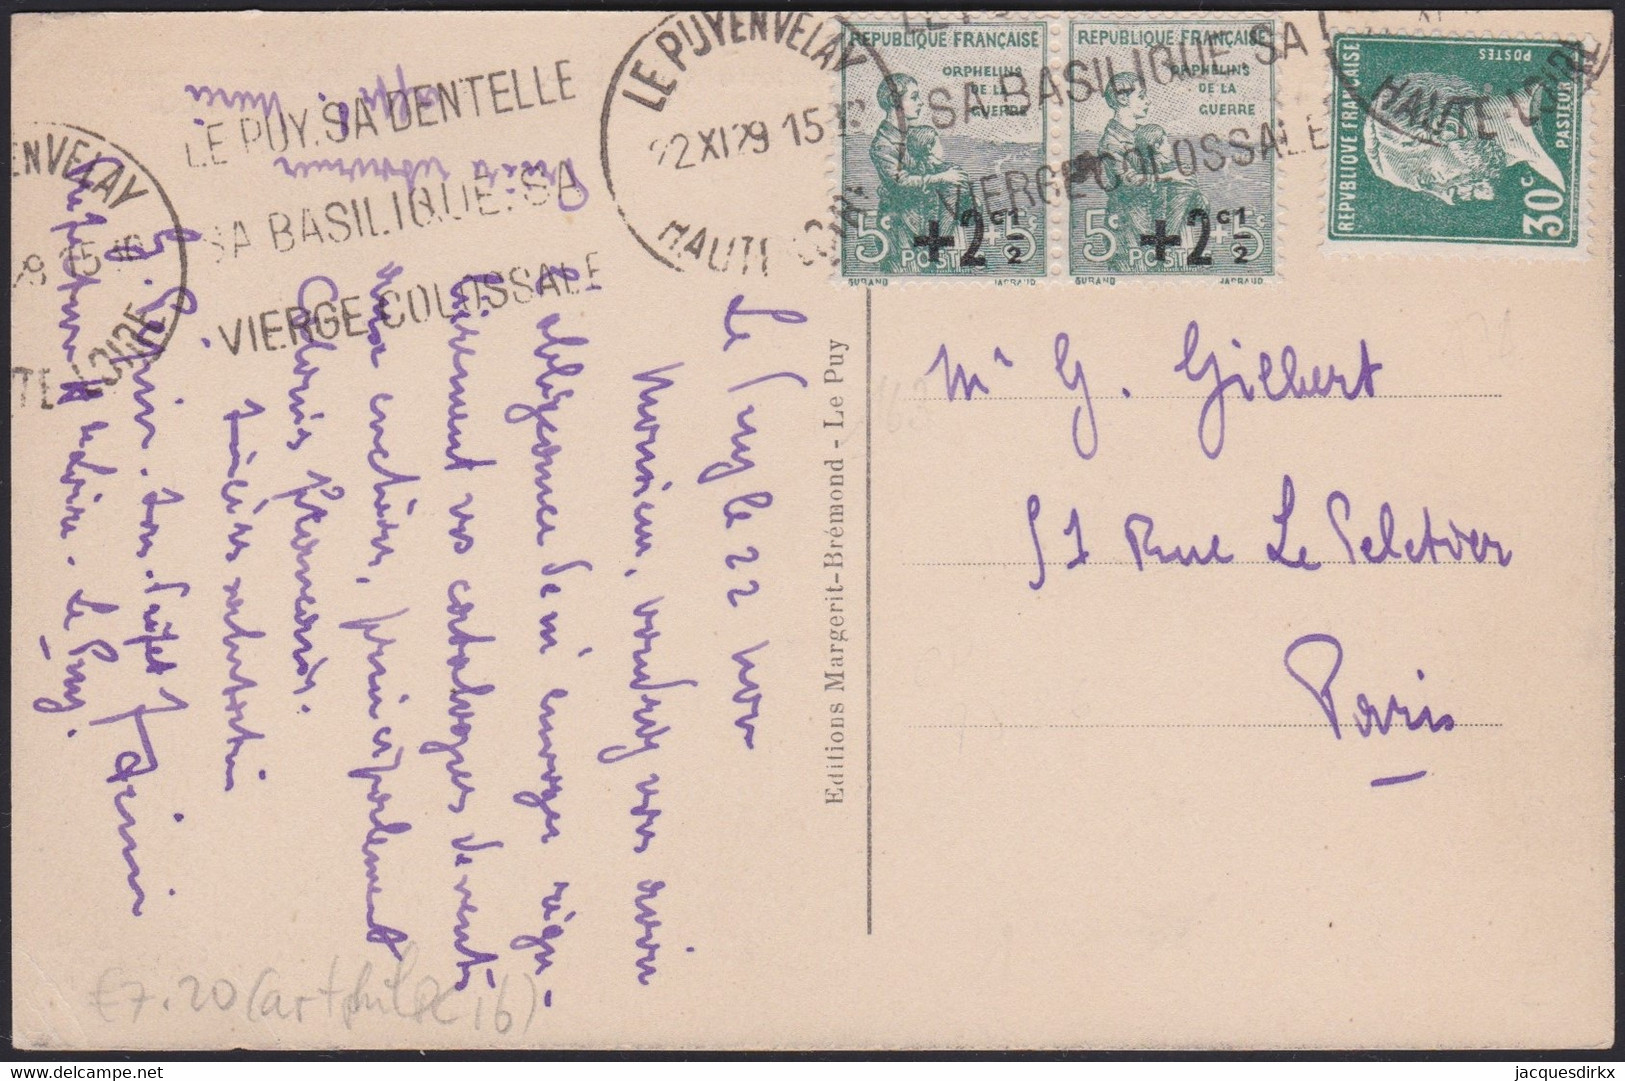 LE PUY EN VELAY
22 XI 29 15
HAUTE LOIRE
LE PUY. SA DENTELLE
SA BASILIQUE. SA
VIERGE COLOSSALE
EN VELAY
29 15
LOIRE
REPUBLIQUE FRANÇAISE
ORPHELINS
DE LA
GUERRE
5c +5
POSTES
+2 c 1/2
REPUBLIQUE FRANÇAISE
ORPHELINS
DE LA
GUERRE
5c +5
POSTES
+2 c 1/2
SA BASILIQUE. SA
VIERGE COLOSSALE
REPVBLIQVE FRANÇAISE
POSTES
PASTEUR
30c
HAUTE-LOIRE
Le Puy le 22 nov
Monsieur, voudriez vous avoir
l'obligeance de m'envoyer régu-
lièrement vos catalogues de vente
aux enchères, principalement
Colonies françaises.
Sincères salutations
Préfecture Hte Loire. Le Puy.
Editions Margerit-Brémond - Le Puy
Mr G. Gilbert
51 Rue Le Peletier
Paris
€7.20 (artphila 16)
delcampe.net
jacquesdirkx